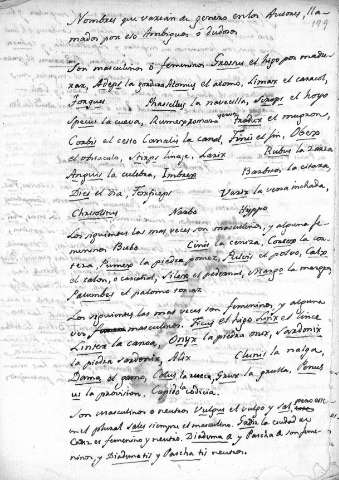 Nombres que varian de genero en los Autores, lla-
mados por eso Ambiguos ó dudosos
199
Son masculinos ó femeninos Grossus el higo por madu-
rar, Adeps la grosura Atomus el atomo, Limax el caracol,
Torques Phasellus la navecilla, Scrobs el hoyo
Specus la cueva, Rumex Tradux el mugron,
Corbis el cesto Canalis la canal, Finis el fin, Obex
el obstaculo, Stirps linaje, Larix Rubus la zarza
Anguis la culebra, Imbrex Barbitos la citara,
Dies el dia, Forfices Varix la vena inchada,
Chrisolitus Narbo Hyppo
Los siguientes las mas veces son masculinos, y alguna fe-
meninos Bubo Cinis la ceniza, Cortex la cor-
teza, Pumex la piedra pomez, Pulvis el polvo, Calx
el talon, o carcañal, Silex el pedernal, Margo la margen,
Palumbes el palomo torcaz
Los siguientes las mas veces son femeninos, y alguna
vez masculinos. Ficus el higo Linx el lince
Linter la canoa, Onyx la piedra onix, Sardonix
la piedra sardonia, Alix Clunis la nalga,
Dama el gamo, Colus la rueca, Grus la grulla, Penus
us la provision, Cupido la codicia.
Son masculinos o neutros Vulgus el vulgo y sal, pero este
en el plural sales siempre es masculino. Gadir la ciudad de
Cadiz es femenino y neutro. Diadema æ y Pascha æ son feme-
ninos, y Diadematis y Paschatis neutros.